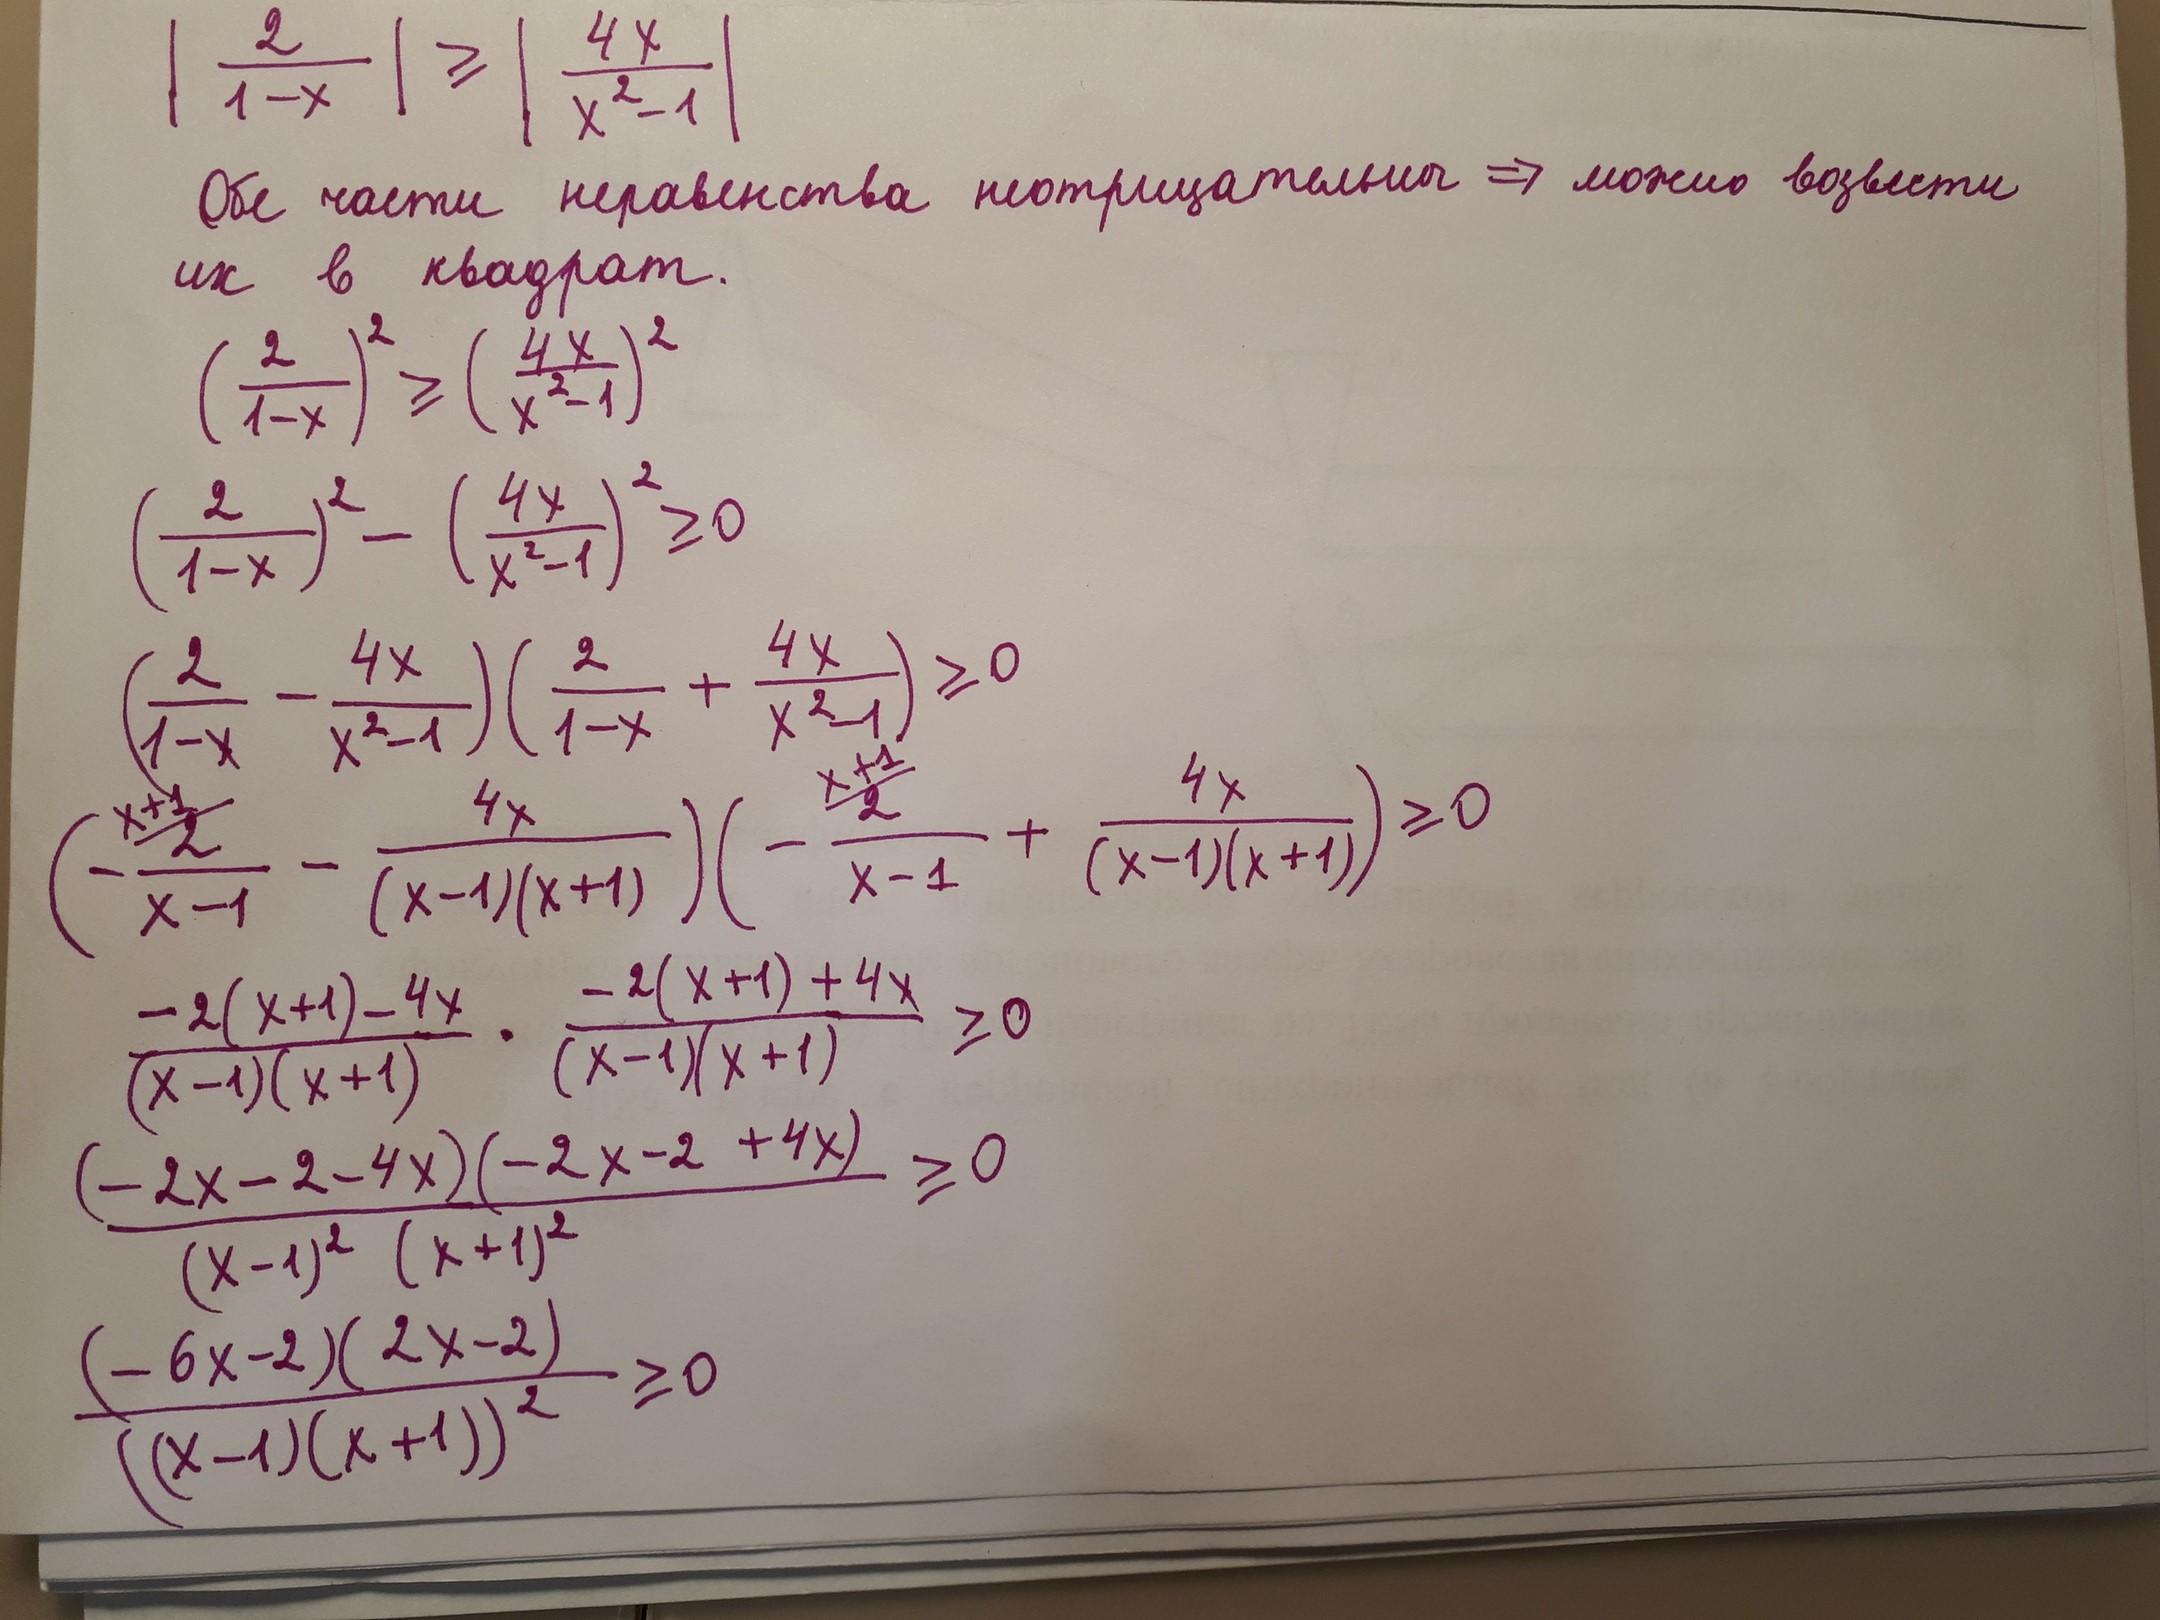 |2/(1-x)| ⩾ |4x/(x²-1)|
Обе части неравенства неотрицательны => можно возвести
их в квадрат.
(2/(1-x))² ⩾ (4x/(x²-1))²
(2/(1-x))² - (4x/(x²-1))² ⩾ 0
(2/(1-x) - 4x/(x²-1))(2/(1-x) + 4x/(x²-1)) ⩾ 0
(- ˣ⁺¹⁄ 2/(x-1) - 4x/((x-1)(x+1)))(- ˣ⁺¹⁄ 2/(x-1) + 4x/((x-1)(x+1))) ⩾ 0
(-2(x+1)-4x)/((x-1)(x+1)) · (-2(x+1)+4x)/((x-1)(x+1)) ⩾ 0
((-2x-2-4x)(-2x-2+4x))/((x-1)² (x+1)²) ⩾ 0
((-6x-2)(2x-2))/((x-1)(x+1))² ⩾ 0